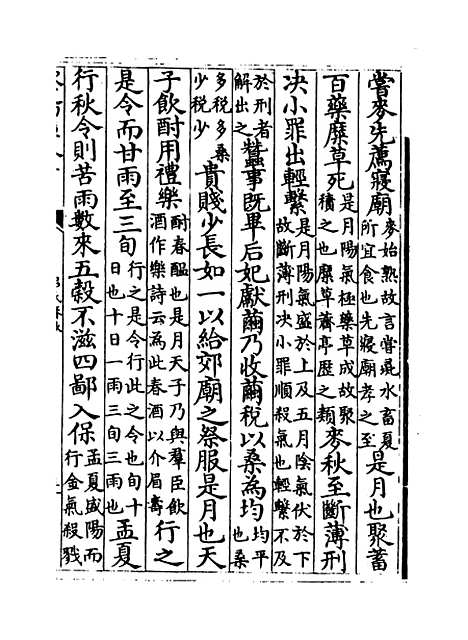 嘗麥先薦寢廟麥始熟故言嘗彘水畜夏所宜食也先寢廟孝之至是月也聚蓄
百藥糜草死是月陽氣極藥草成故聚積之也糜草薺亭歷之類麥秋至斷薄刑
决小罪出輕繫是月陽氣盛於上及五月陰氣伏於下故斷薄刑决小罪順殺氣也輕繫不及
於刑者解出之蠶事既畢后妃獻繭乃收繭稅以桑為均均平也桑
多稅多桑少稅少貴賤少長如一以給郊廟之祭服是月也天
子飲酎用禮樂酎春醖也是月天子乃與羣臣飲酒作樂詩云為此春酒以介眉壽行之
是令而甘雨至三旬行之是令行此之令也旬十日也十日一雨三旬三雨也孟夏
行秋令則苦雨數來五穀不滋四鄙入保孟夏盛陽而行金氣殺戮